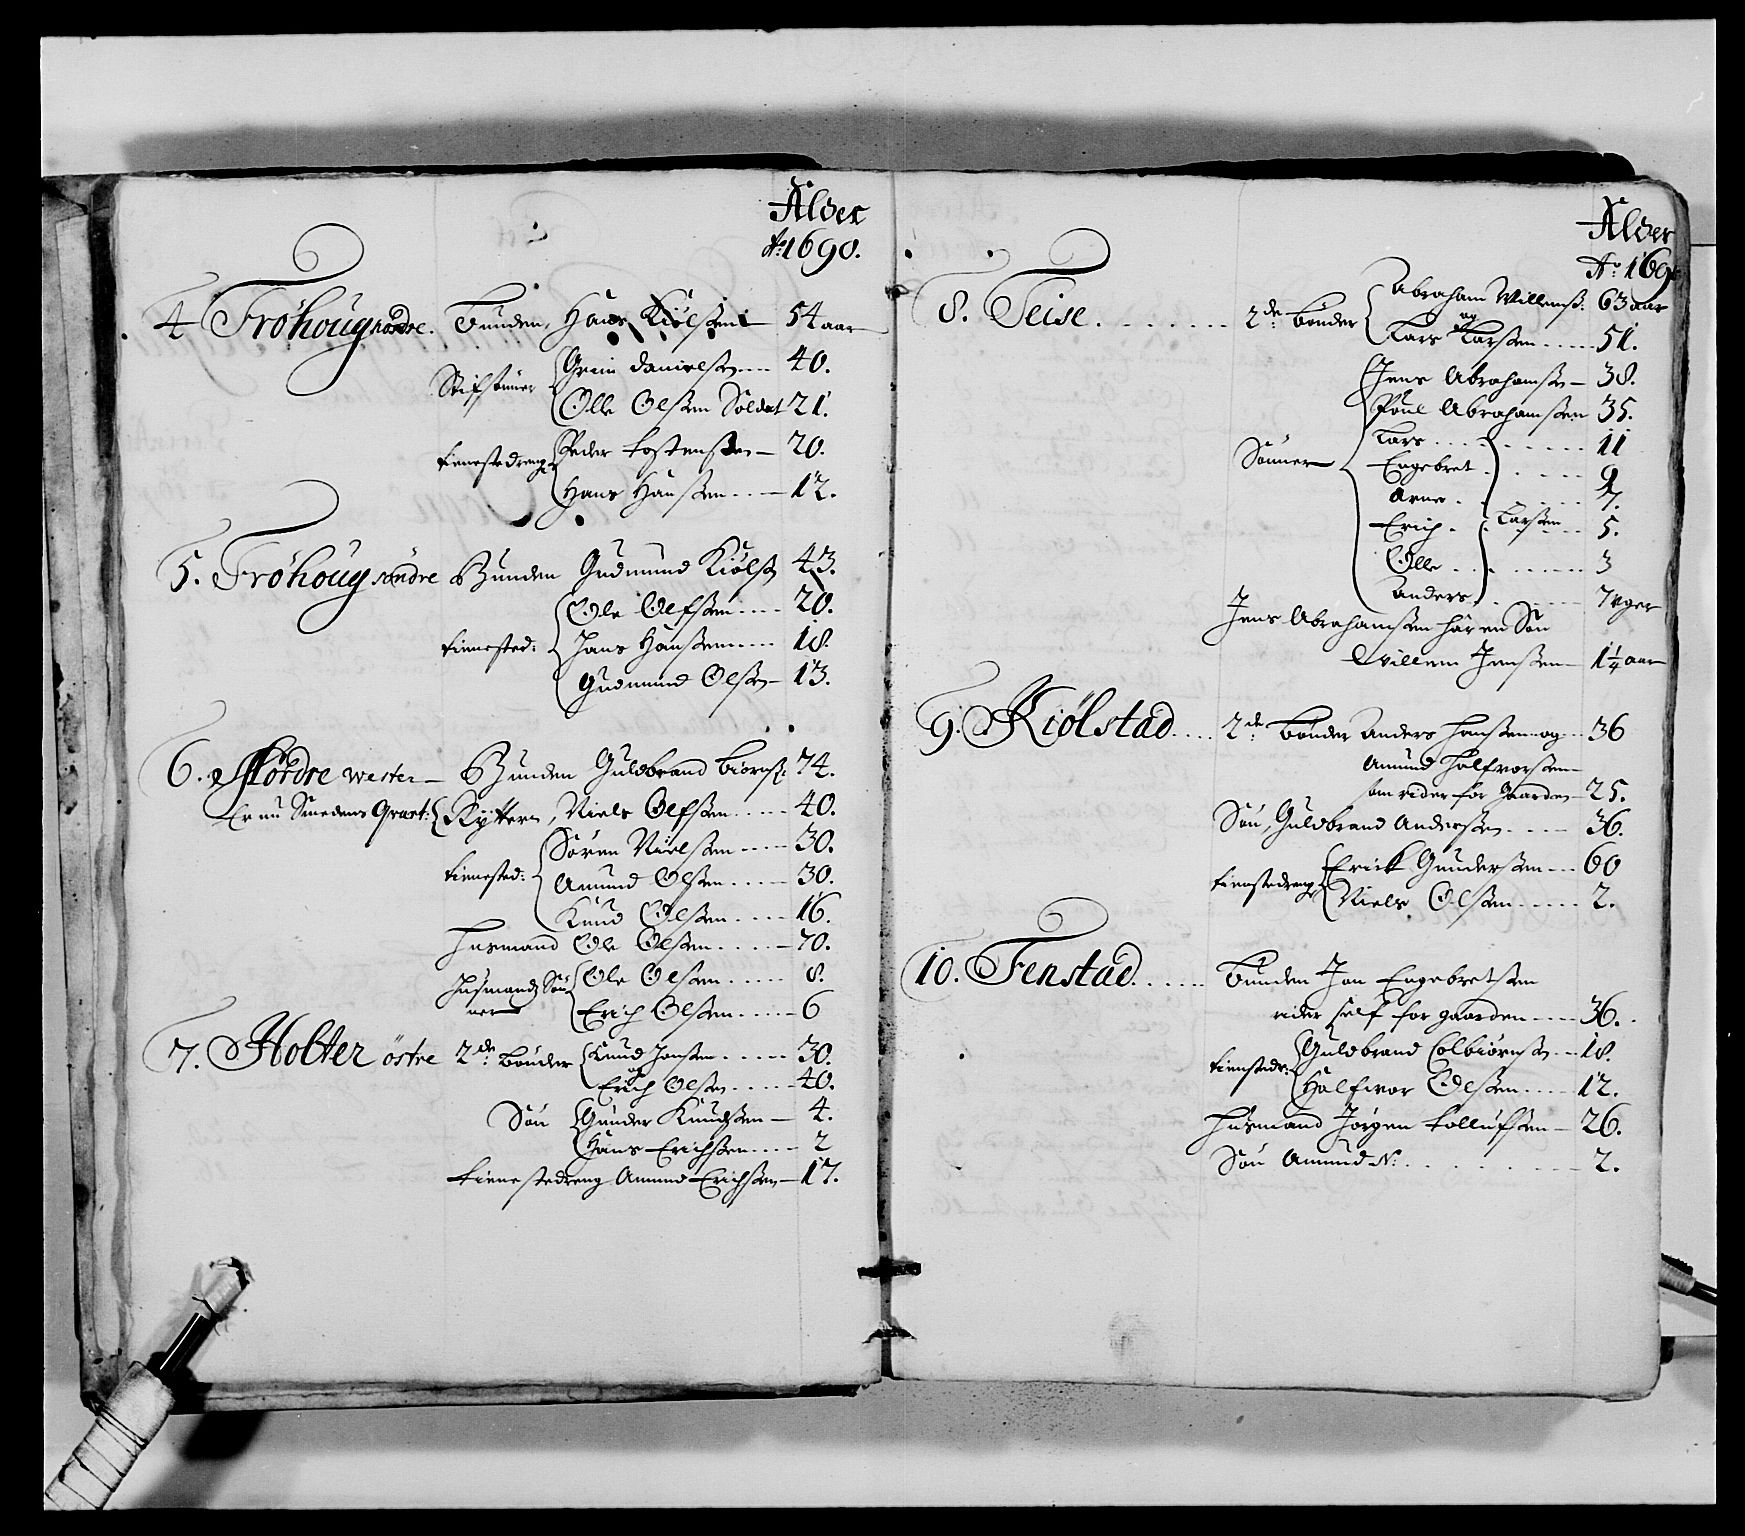 Alder
Ao 1690.
4 Fröhoug nordre. Bunden, Hans Kiølsen 54 aar
Stifsönner Grim Danielsen 40.
Olle Olsen Soldat 21.
tienestedreng Peder Tostensen 20.
Hans Hansen 12.
5. Fröhoug söndre Bunden Gudmund Kiøls 43.
Ole Olsen 20.
tienested: Hans Hansen 18.
Gudmund Olsen 13.
6. Hordre wester Bunden Guldbrand Biörns: 74.
Er nu Smedens Qvart: Rytter, Niels Olsen 40.
Sören Nielsen 30.
tienested: Amund Olsen 30.
Knud Olsen 16.
Husmand Ole Olsen 70.
Husmands Sön Ole Olsen 8.
ner Erich Olsen 6
7. Holter östre 2de Bönder Knud Jensen 30.
og
Erich Olsen 40.
Sön Gunder Knudsen 4.
Hans Erichsen 2
tienestedreng Amund Erichsen 17.
Alder
Ao 169
8. Teise. 2de Bönder Abraham Willums: 63 aar
og
Lars Larsen 51.
Jens Abrahamsen 38.
Poul Abrahamsen 35.
Lars 11
Sönner Engebret 9
Arne 7.
Erich Larsen 5.
Olle 3
Anders 7 uger
Jens Abrahamsen har en Sön
Willem Jensen 1 1/4 aar
9. Kiölstad 2de Bönder Anders Hansen og 36
Amund Halfvorsen
som rider for Gaarden 25.
Sön, Guldbrand Andersen 36.
tienstedreng Erich Gundersen 60
Niels Olsen 2.
10. Fenstad Bunden Jon Engebretsen
rider self for gaarden 36.
Guldbrand Colbiörnsen 18.
tiensteds: Halfvor Olsen 12.
Husmand Jörgen Tollufsen 26.
Sön Amund N: 2.